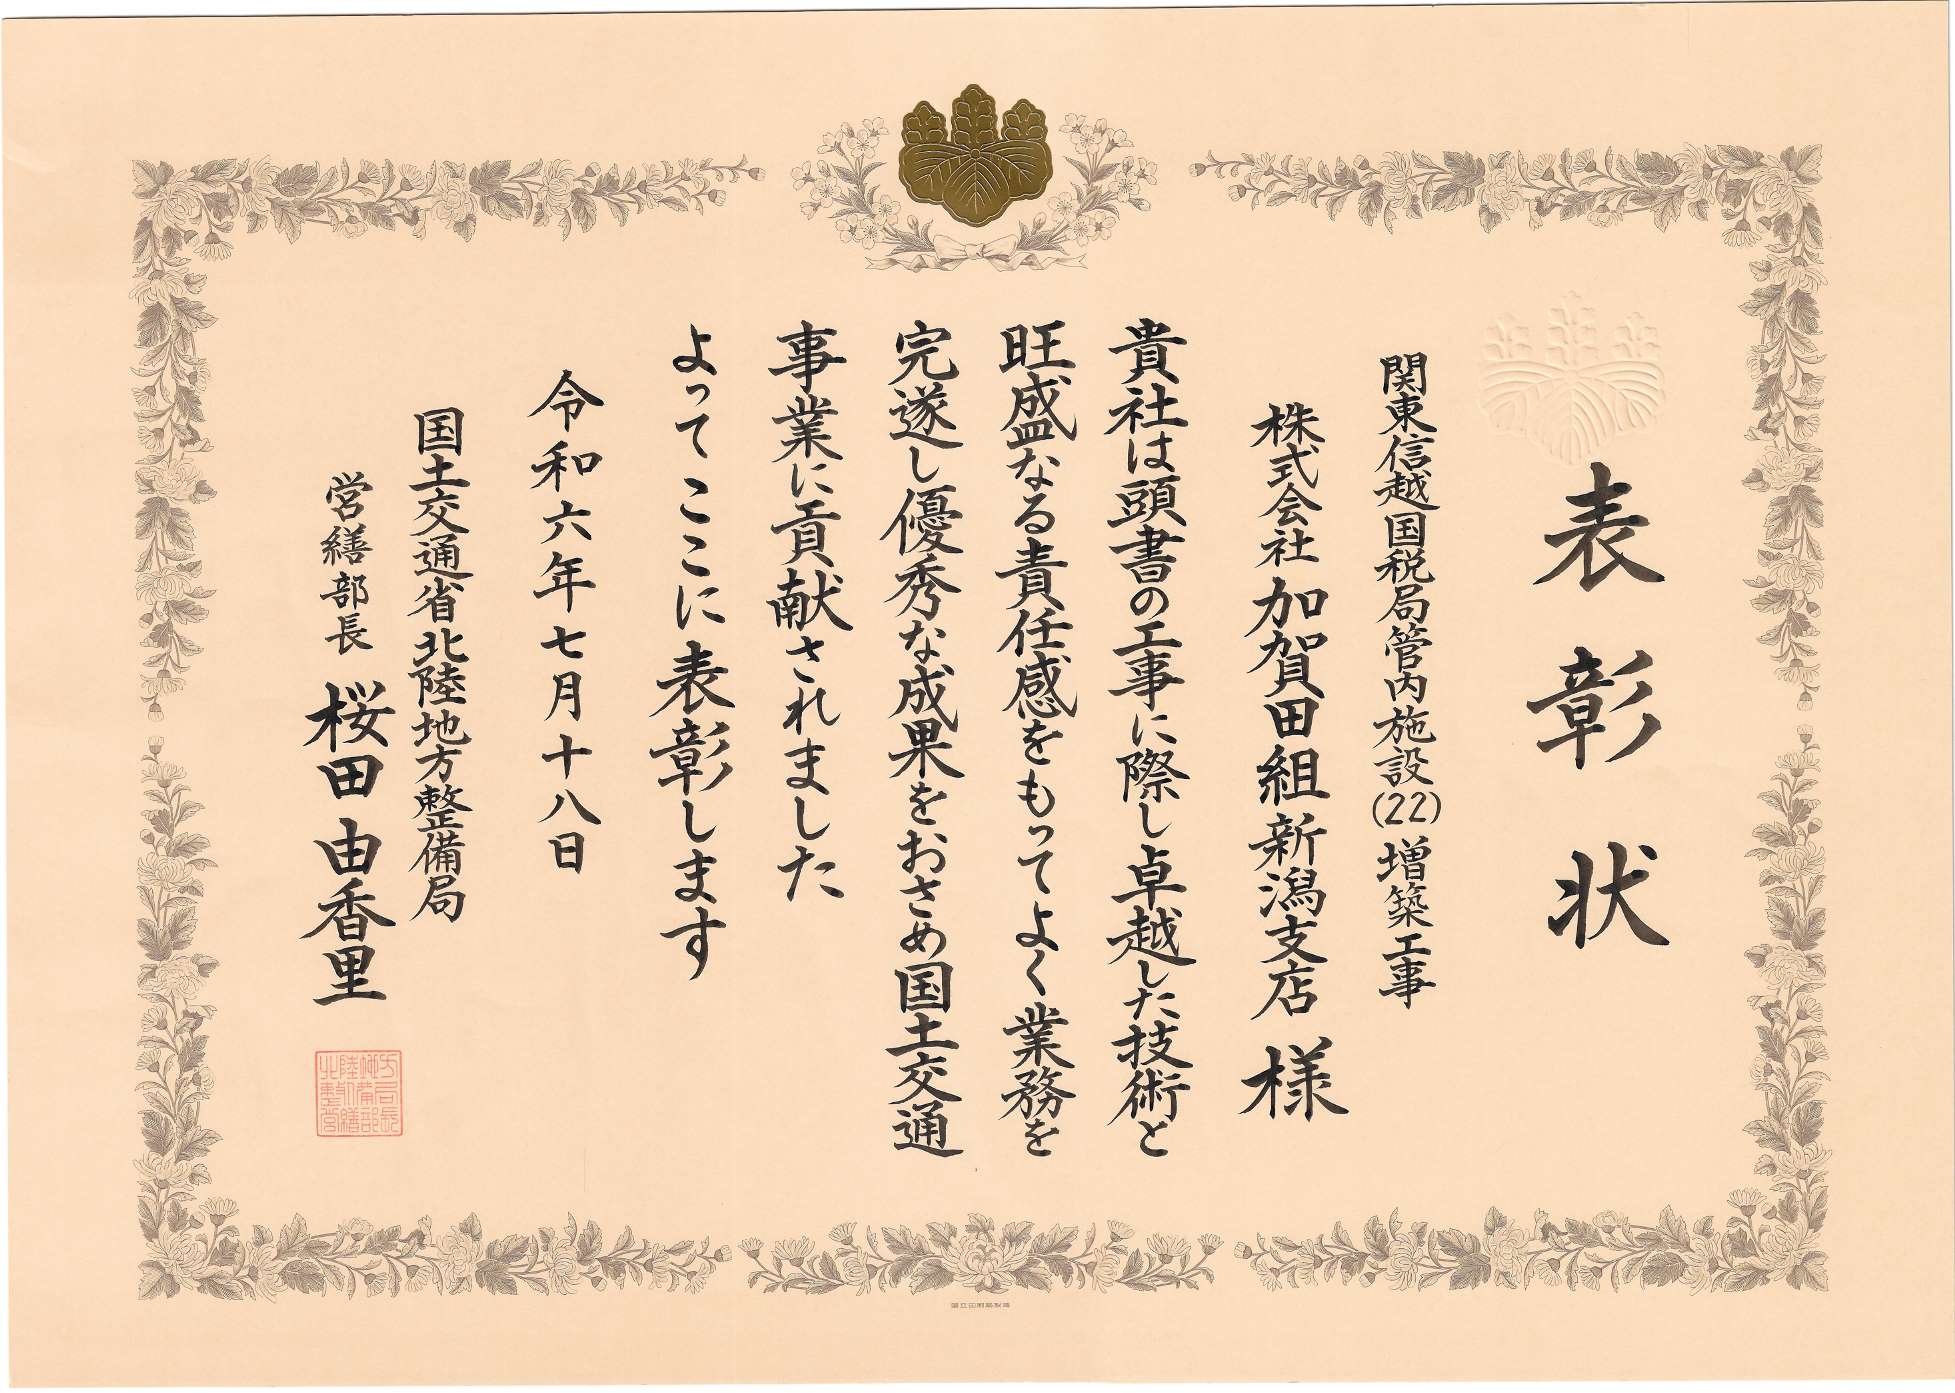 表彰状
関東信越国税局管内施設(22)増築工事
株式会社加賀田組新潟支店様
貴社は頭書の工事に際し卓越した技術と
旺盛なる責任感をもってよく業務を
完遂し優秀な成果をおさめ国土交通
事業に貢献されました
よってここに表彰します
令和六年七月十八日
国土交通省北陸地方整備局
営繕部長 桜田由香里